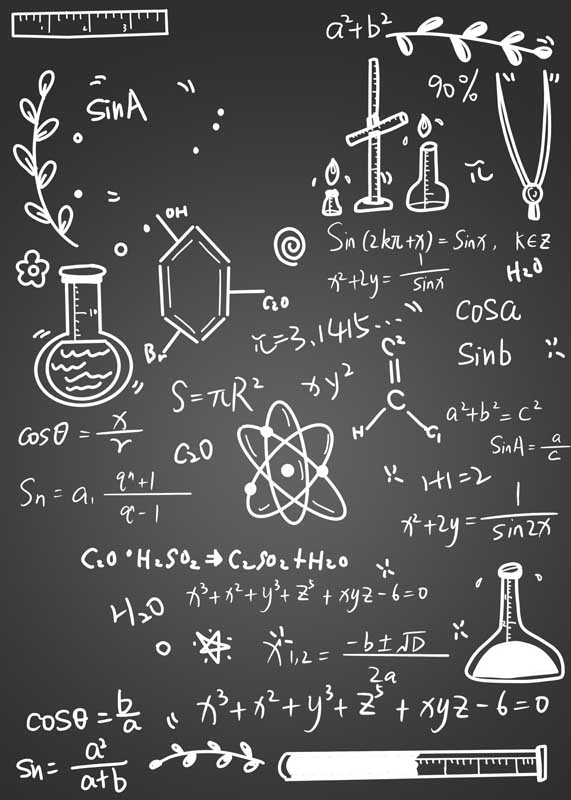 1 2 3
a²+b²
90%
sinA
π
OH
Sin (2kπ+x) = Sinx, K∈Z
x²+2y = 1/sinx
H₂O
C₂O
Br
cosa
π=3.1415...
C²
Sinb
S=πR²
xy²
C
H
C₁
a²+b²=c²
cosθ = x/r
SinA = a/c
C₂O
1+1=2
Sn = a₁ qⁿ+1/q-1
x²+2y = 1/sin2x
C₂O·H₂SO₂⇒C₂SO₂+H₂O
x³+x²+y³+z⁵+xyz-6=0
H₂O
x1,2 = -b±√D/2a
cosθ = b/a
x³+x²+y³+z⁵+xyz-6=0
Sn = a²/a+b